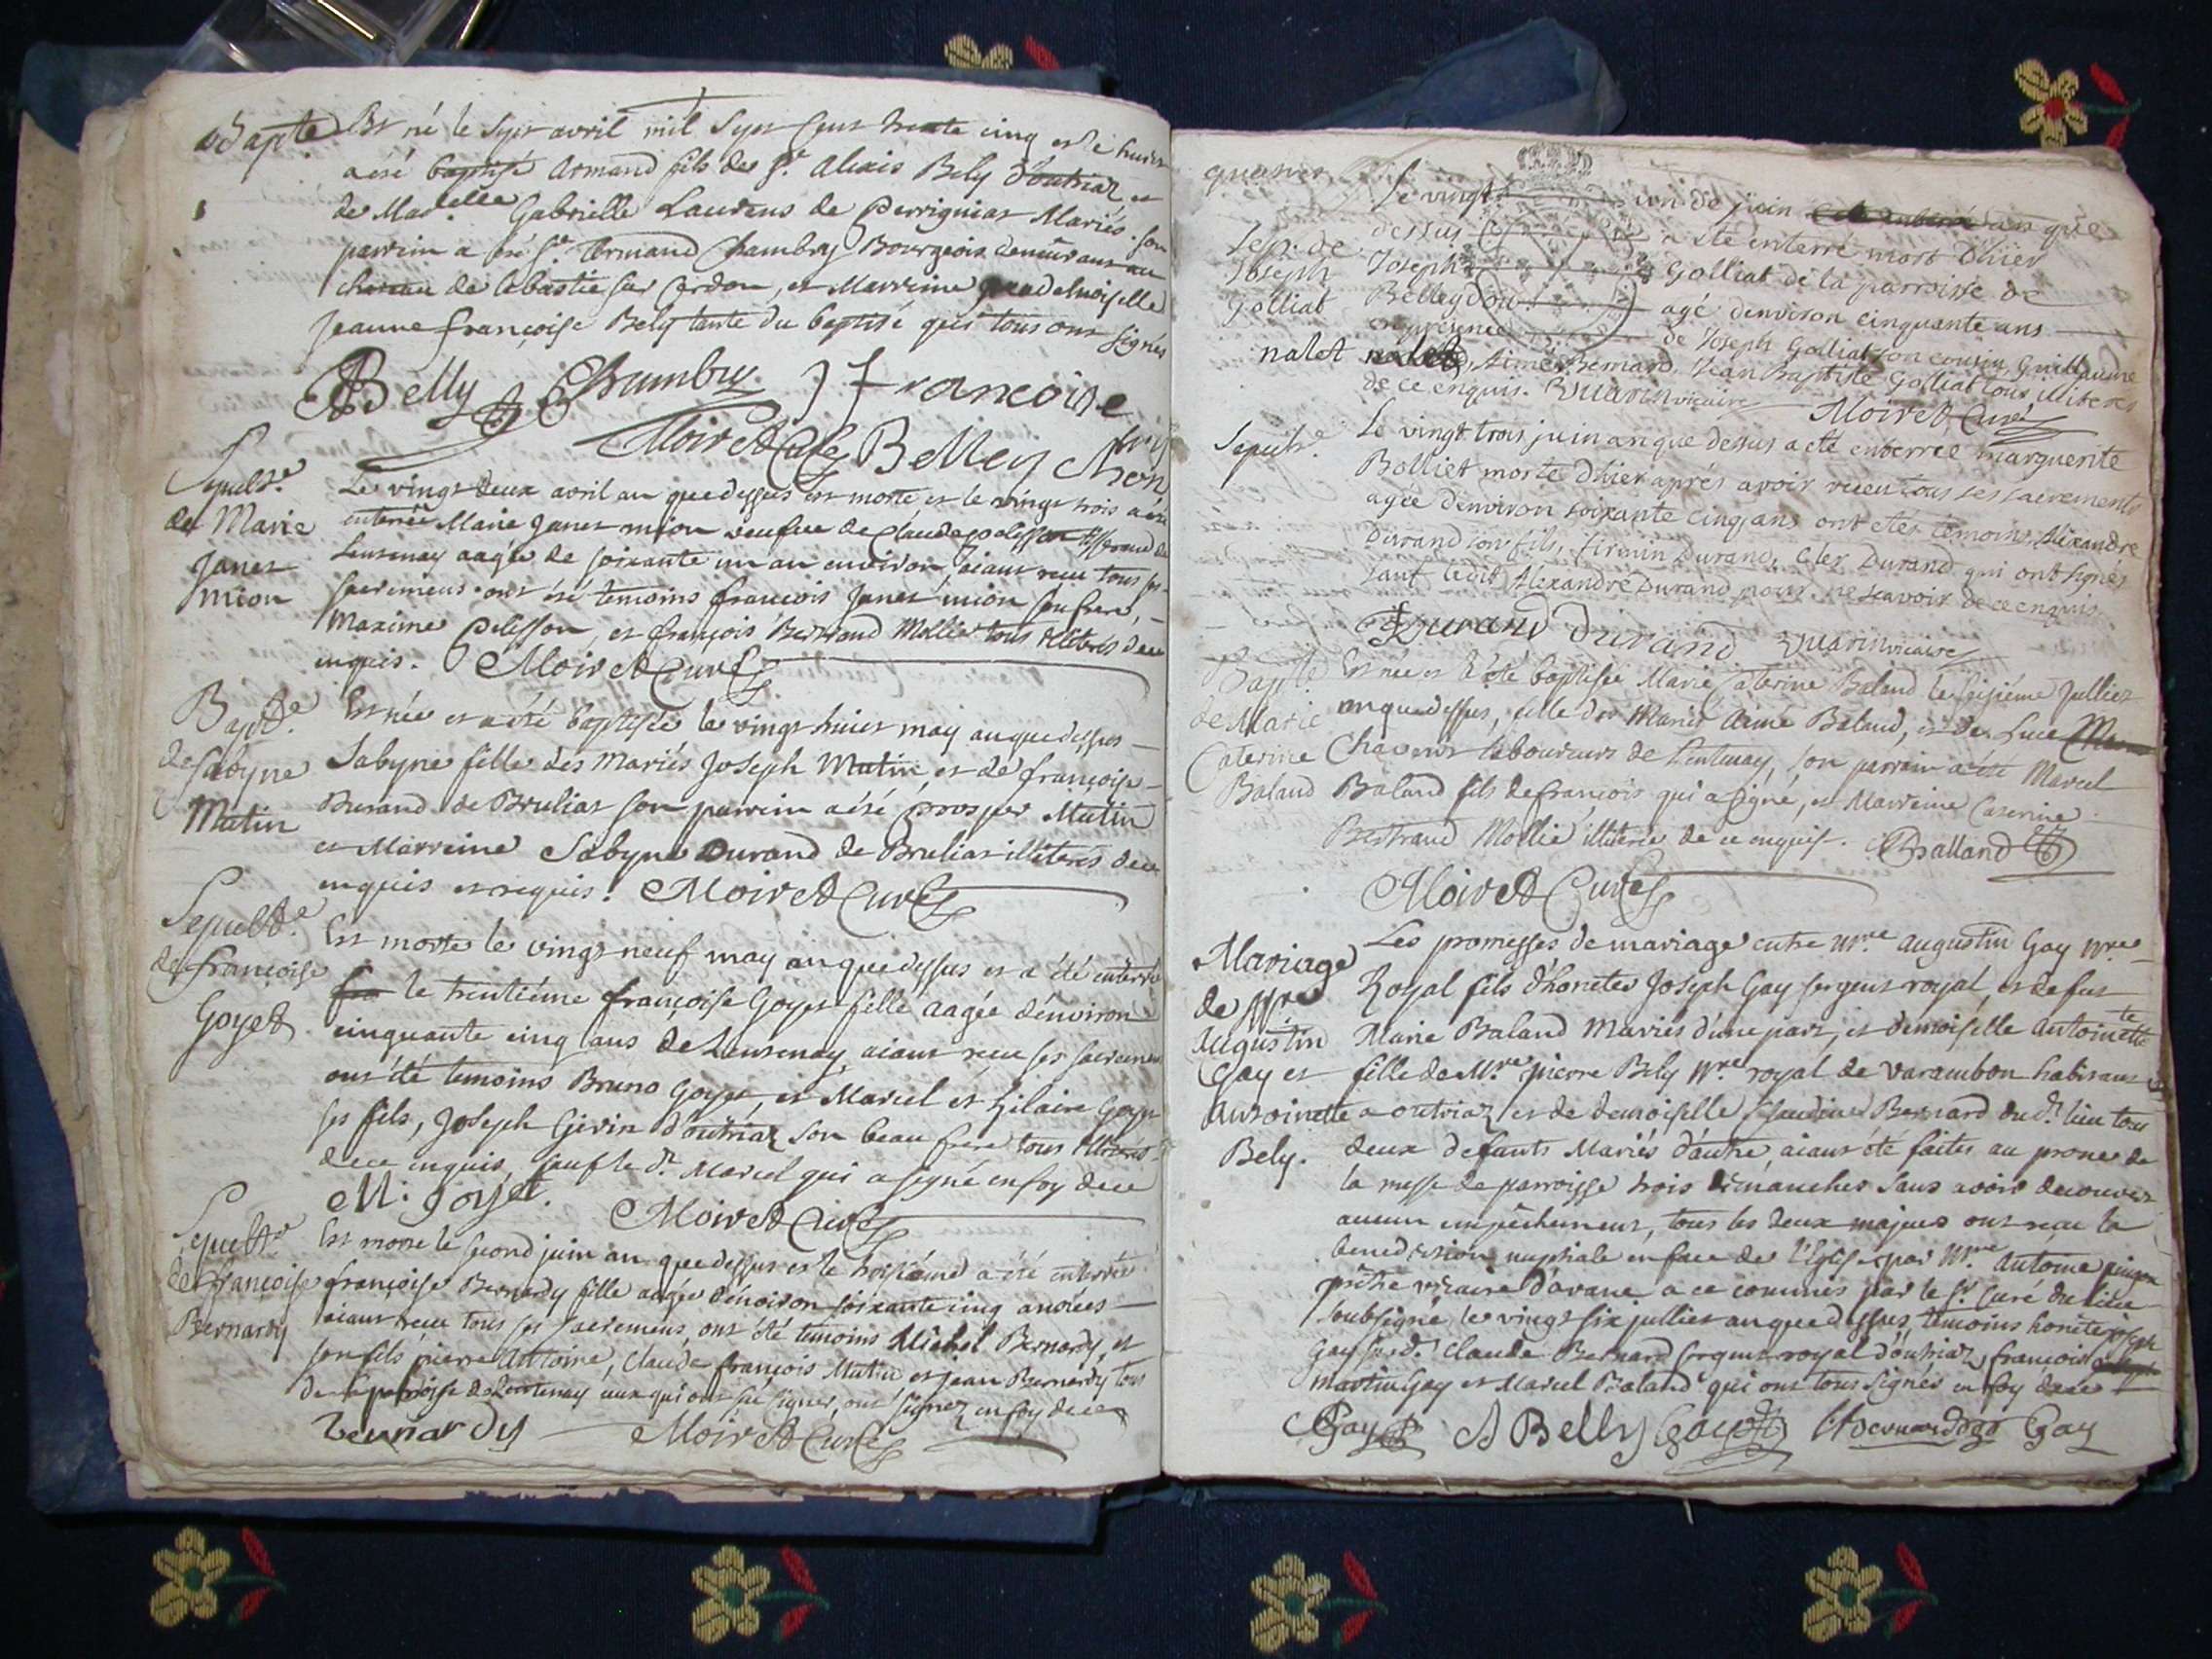 Bapte Est né le Sept avril mil Sept Cent trente cinq et le huict
a été baptisé Armand fils de Sr. Alexis Bely d'outriaz et
de Madelle Gabrielle Laurens de Perrignias Mariés. son
parrin a été Sr. Armand Chambry Bourgeois demeurant au
chateau de labastie sur Cerdon, et Marreine Mademoiselle
Jeanne françoise Bely tante du baptisé qui tous ont signés
Belly Chambry J françoise
Moiret Curé Belley
Sepultre Le vingt deux avril an que dessus est morte et le vingt trois a été
de Marie enterrée Marie Janet mion veufve de Claude pelisson tisserand de
Janet Lentenay aagée de soixante un an environ aiant receu tous ses
mion sacremens. ont été temoins françois Janet mion son frere,
Maxime Pelisson, et françois Bertrand Mollie tous illiterés de ce
enquis. Moiret Curé
Bapte. Est née et a été baptisée le vingt huict may an que dessus
de Sabyne Sabyne fille des Mariés Joseph Mutin, et de françoise
Mutin Durand de Bruliat son parrin a été prosper Mutin
et Marreine Sabyne Durand de Bruliat illiterés de ce
enquis et requis. Moiret Curé
Sepultre. Est morte le vingt neuf may an que dessus et a été enterrée
de françoise le trentiéme françoise Goyet fille aagée d'environ
Goyet cinquante cinq ans de Lentenay, aiant receu ses sacremens
ont été temoins Bruno Goyet, et Marcel et hilaire Goyet
ses fils, Joseph Girin d'outriaz son beau frere tous illiterés
de ce enquis, sauf le dt. Marcel qui a signé en foy de ce
M. goyet. Moiret Curé
Sepultre Est morte le second juin an que dessus et le troisiéme a été enterrée
de françoise françoise Bernardy fille aagée d'environ soixante cinq années
Bernardy aiant receu tous ses sacremens, ont été temoins Michel Bernardy, et
son fils pierre Antoine, Claude françois Mutin et jean Bernardy tous
de la parroisse de Lentenay ceux qui ont sçu signer, ont signez en foy de ce
bernardy Moiret Curé
Le vingt un de juin an que
dessus a eté enterré mort dhier
Sep. de Joseph Golliat de la parroisse de
Joseph Belleydou agé denviron cinquante ans
Golliat en presence de Joseph Golliat son cousin, Guillaume
nalet Aimé Bernard, Jean Baptiste Golliat tous illiterés
de ce enquis. vuarin vicaire Moiret Curé
Sepultre. Le vingt trois juin an que dessus a eté enterrée marguerite
Bolliet morte dhier aprés avoir receu tous ses sacrements
agée denviron soixante cinq ans ont eté témoins Alexandre
Durand son fils, firmin Durand, Cler Durand qui ont signés
sauf le dit Alexandre Durand pour ne scavoir de ce enquis.
Durand Durand vuarin vicaire
Bapte Est née et a été baptisée Marie Caterine Baland le sisiéme Juillet
de Marie an que dessus, fille des Mariés Aimé Baland, et de Luce
Caterine Chavent laboureurs de Lentenay, son parrain a été Marcel
Baland Baland fils de françois qui a signé, et Marreine Caterine
Bertrand Mollie illiterée de ce enquis. Balland
Moiret Curé
Les promesses de mariage entre Mre. Augustin Gay Nre.
Mariage Royal fils d'honete Joseph Gay sergent royal, et de fut
de Mre Marie Baland Mariés d'une part, et demoiselle Antoinette
Augustin fille de Mre. pierre Bely Nre. royal de varambon habitant
Gay et a outriaz et de demoiselle Claudine Bernard du dt. lieu tous
Antoinette deux defunts Mariés d'autre, aiant été faites au prone de
Bely. la messe de parroisse trois dimanches sans avoir decouvert
aucun empêchement, tous les deux majeurs ont receu la
benediction nuptiale en face de l'Eglise par Mre. Antoine
prêtre vicaire d'avane a ce commis par le Sr. Curé du lieu
soubsigné le vingt six juillet an que dessus, temoins honete joseph
Gay susd. Claude Bernard sergent royal d'outriaz, françois
martin Gay et Marcel Baland qui ont tous signés en foy de ce
Gay A Belly Gay Bernard Gay